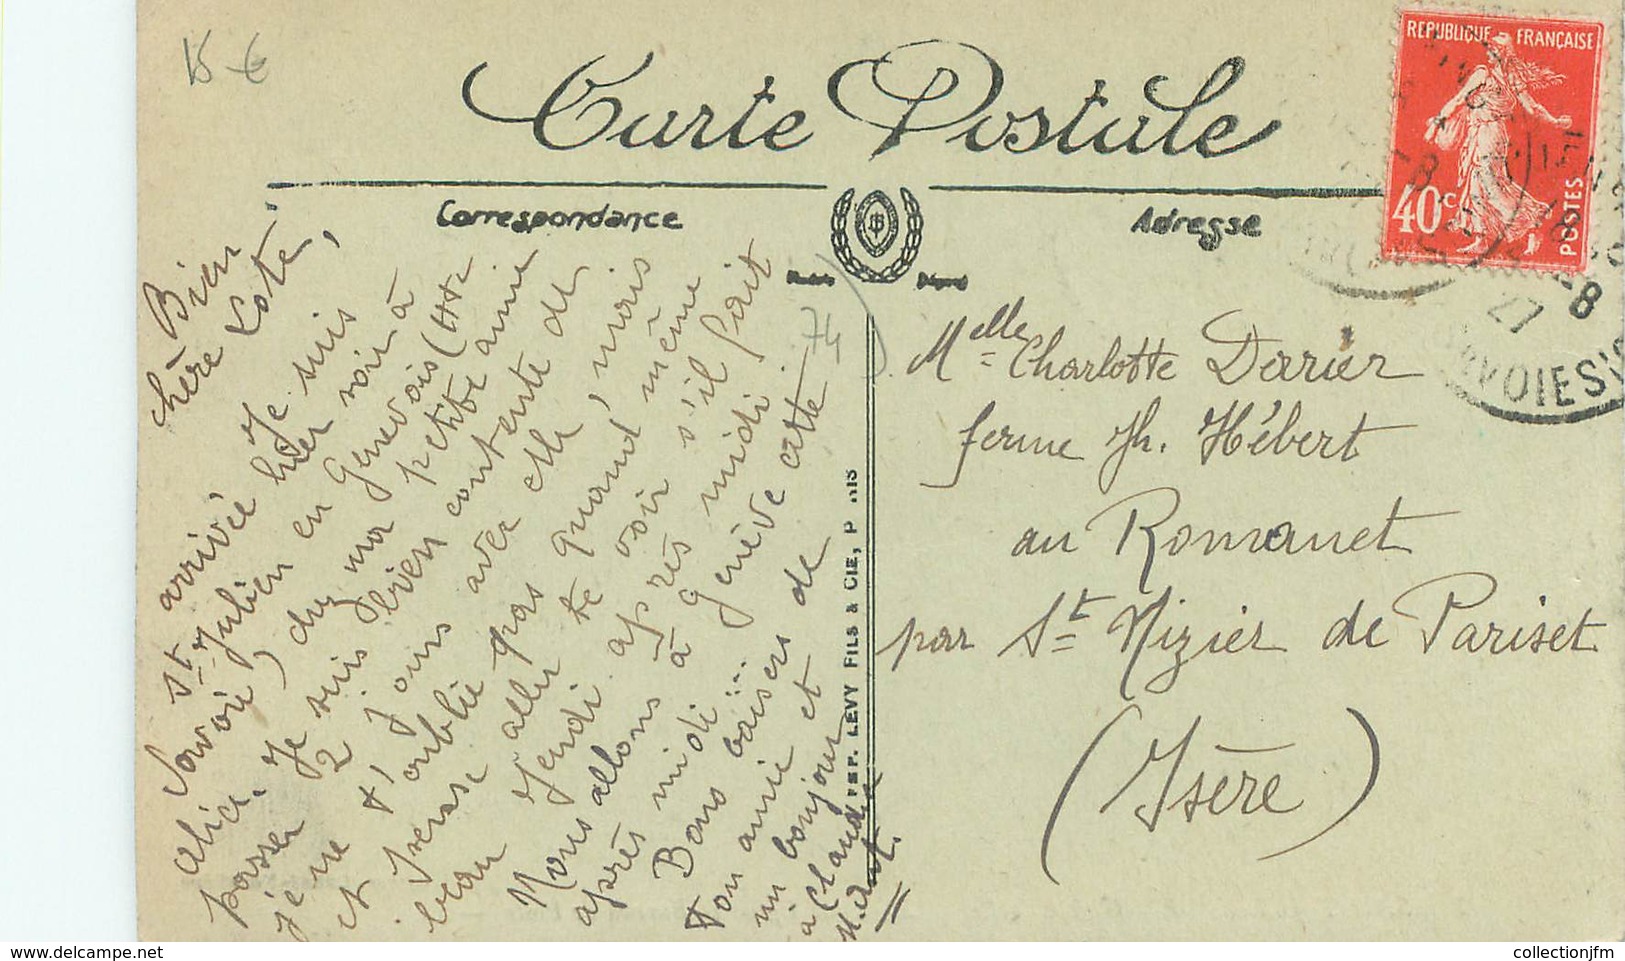 15 €
Carte Postale
REPUBLIQUE FRANÇAISE
40c
POSTES
Correspondance
Adresse
27
74
Bien
chère Lote,
Je suis
arrivée hier soir à
St Julien en Genevois (Hte
Savoie) chez ma petite amie
Alice. Je suis bien contente de
passer 2 jours avec elle, mais
je ne t'oublie pas quand même
et pense aller te voir s'il fait
beau Jeudi après midi.
Nous allons à Genève cette
après midi...
Bons baisers de
ton amie et
un bonjour
à Claude
Melle Charlotte Darier
ferme Jh. Hébert
au Romanet
par St Nizier de Pariset
(Isère)
IMP. LEVY FILS & CIE, PARIS
collectionjfm